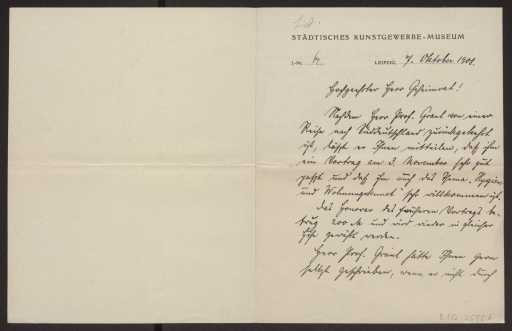 STÄDTISCHES KUNSTGEWERBE-MUSEUM
LEIPZIG, 7. Oktober 1901.
Hochgeehrter Herr Geheimrat!
Nachdem Herr Prof. Graul von einer
Reise nach Süddeutschland zurückgekehrt
ist, läßt er Ihnen mitteilen, daß ihm
ein Vortrag am 3. November sehr gut
paßt und daß ihm auch das Thema „Hygiene
und Wohnungskunst" sehr willkommen ist.
Das Honorar des früheren Vortrags be-
trug 200 M und wird wieder in gleicher
Höhe gewährt werden.
Herr Prof. Graul hätte Ihnen gern
selbst geschrieben, wenn er nicht durch